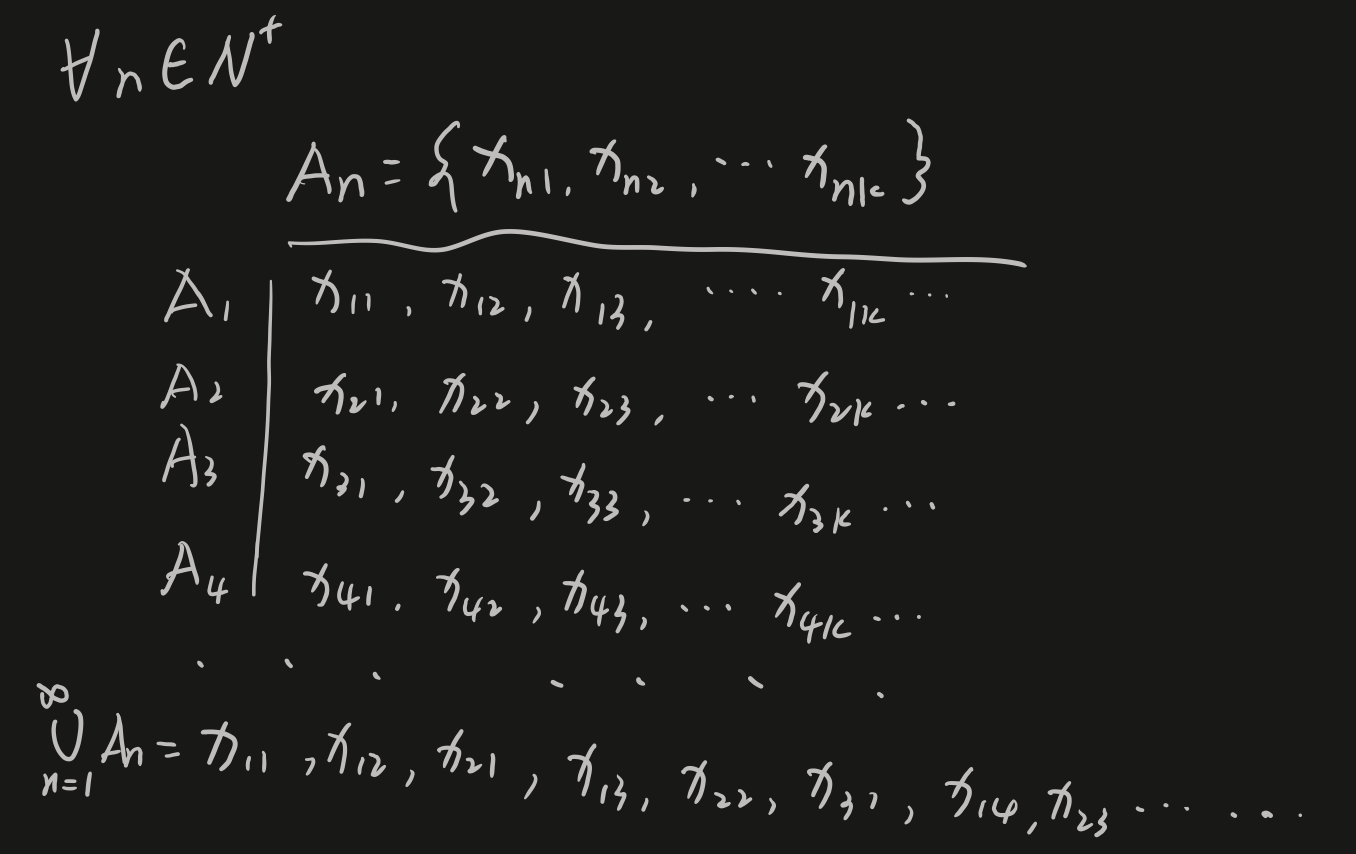 ∀n∈N⁺
Aₙ = { xₙ₁, xₙ₂, ⋯ xₙₖ }
A₁ | x₁₁, x₁₂, x₁₃, ⋯⋯ x₁ₖ ⋯
A₂ | x₂₁, x₂₂, x₂₃, ⋯ x₂ₖ ⋯
A₃ | x₃₁, x₃₂, x₃₃, ⋯ x₃ₖ ⋯
A₄ | x₄₁, x₄₂, x₄₃, ⋯ x₄ₖ ⋯
· · · · · · ·
∞
∪ Aₙ = x₁₁, x₁₂, x₂₁, x₁₃, x₂₂, x₃₁, x₁₄, x₂₃ ⋯ ⋯
n=1